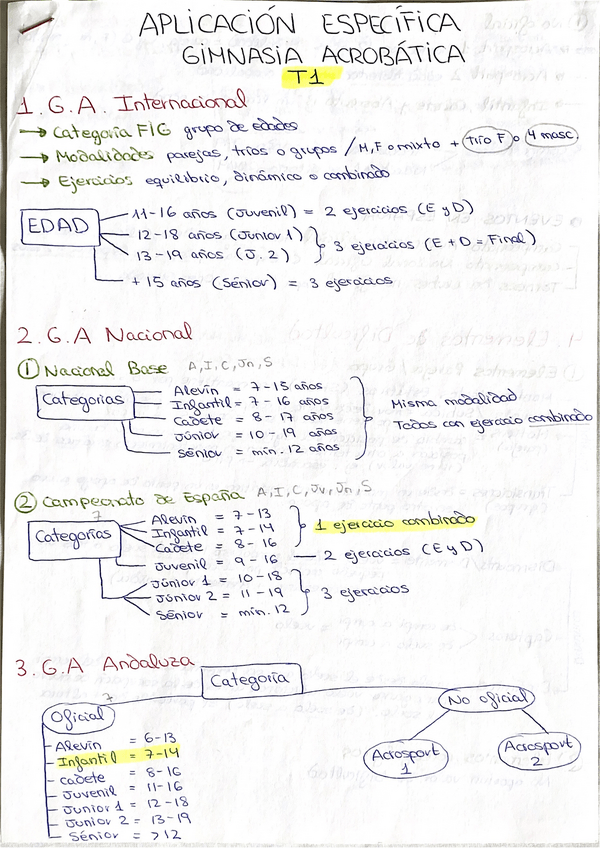 APLICACIÓN ESPECÍFICA
GIMNASIA ACROBÁTICA
T1
1. G. A. Internacional
→ Categoría FIG grupo de edades
→ Modalidades parejas, tríos o grupos / M, F o mixto + Trío F o 4 masc.
→ Ejercicios equilibrio, dinámico o combinado
EDAD
11-16 años (Juvenil) = 2 ejercicios (E y D)
12-18 años (Junior 1)
13-19 años (J. 2)
3 ejercicios (E + D = Final)
+ 15 años (Sénior) = 3 ejercicios
2. G. A Nacional
① Nacional Base A, I, C, Jn, S
Categorías
Alevín = 7-15 años
Infantil = 7-16 años
Cadete = 8-17 años
Júnior = 10-19 años
Sénior = mín. 12 años
Misma modalidad
Todas con ejercicio combinado
② Campeonato de España A, I, C, Jv, Jn, S
7
Categorías
Alevin = 7-13
Infantil = 7-14
Cadete = 8-16
1 ejercicio combinado
Juvenil = 9-16 — 2 ejercicios (E y D)
Júnior 1 = 10-18
Júnior 2 = 11-19
Sénior = mín. 12
3 ejercicios
3. G. A Andaluza
Categoría
7
Oficial
No oficial
Alevín = 6-13
Infantil = 7-14
Cadete = 8-16
Juvenil = 11-16
Junior 1 = 12-18
Junior 2 = 13-19
Sénior = >12
Acrosport 1
Acrosport 2